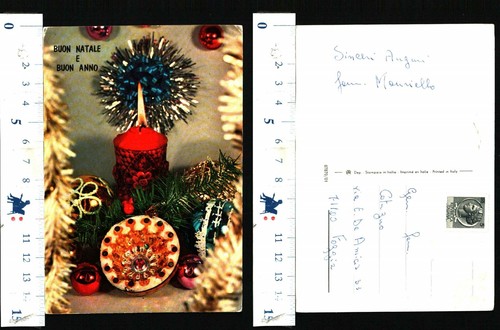 BUON NATALE
E
BUON ANNO
Sinceri Auguri
fam. Mansiello
Dep. Stampato in Italia - Imprimé en Italie - Printed in Italy
Gen. fam.
Calogna
via E De Amicis
71100 Foggia
0
1
2
3
4
5
6
7
8
9
11
12
13
0
1
2
3
4
5
6
7
8
9
11
12
13